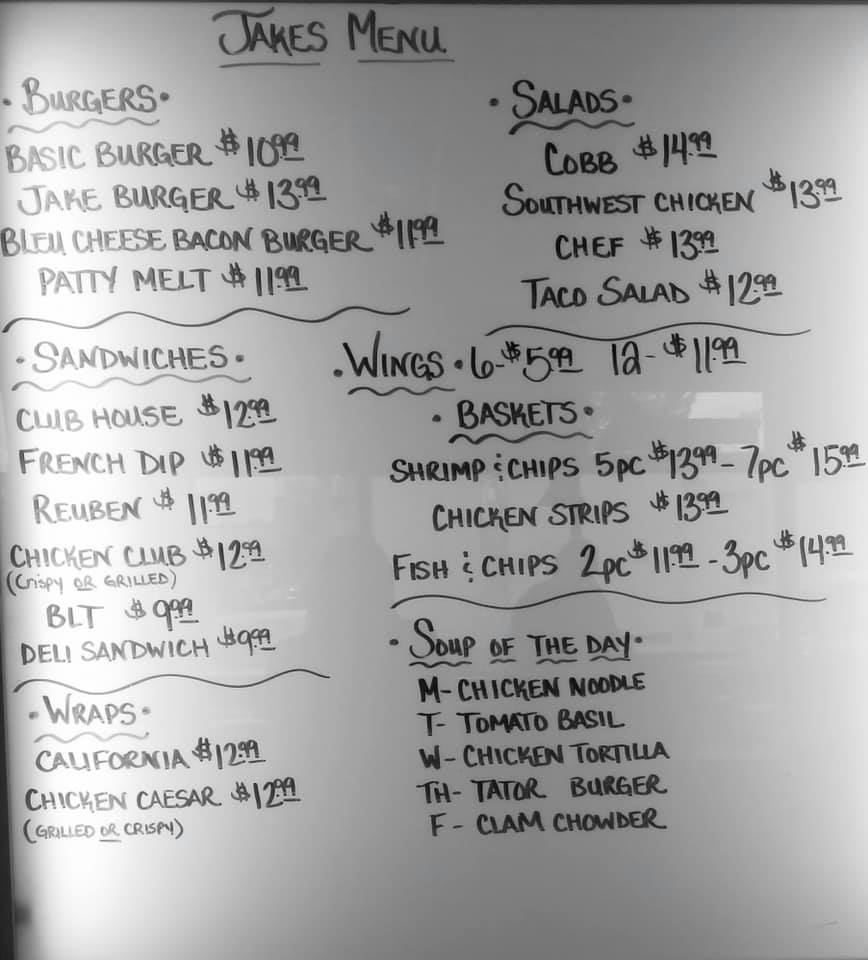 JAKES MENU
• BURGERS •
BASIC BURGER $10.99
JAKE BURGER $13.99
BLEU CHEESE BACON BURGER $11.99
PATTY MELT $11.99
• SANDWICHES •
CLUB HOUSE $12.99
FRENCH DIP $11.99
REUBEN $11.99
CHICKEN CLUB $12.99
(CRISPY OR GRILLED)
BLT $9.99
DELI SANDWICH $9.99
• WRAPS •
CALIFORNIA $12.99
CHICKEN CAESAR $12.99
(GRILLED OR CRISPY)
• SALADS •
COBB $14.99
SOUTHWEST CHICKEN $13.99
CHEF $13.99
TACO SALAD $12.99
• WINGS • 6-$5.99 12-$11.99
• BASKETS •
SHRIMP & CHIPS 5pc $13.99 - 7pc $15.99
CHICKEN STRIPS $13.99
FISH & CHIPS 2pc $11.99 - 3pc $14.99
• SOUP OF THE DAY •
M- CHICKEN NOODLE
T- TOMATO BASIL
W- CHICKEN TORTILLA
TH- TATOR BURGER
F- CLAM CHOWDER